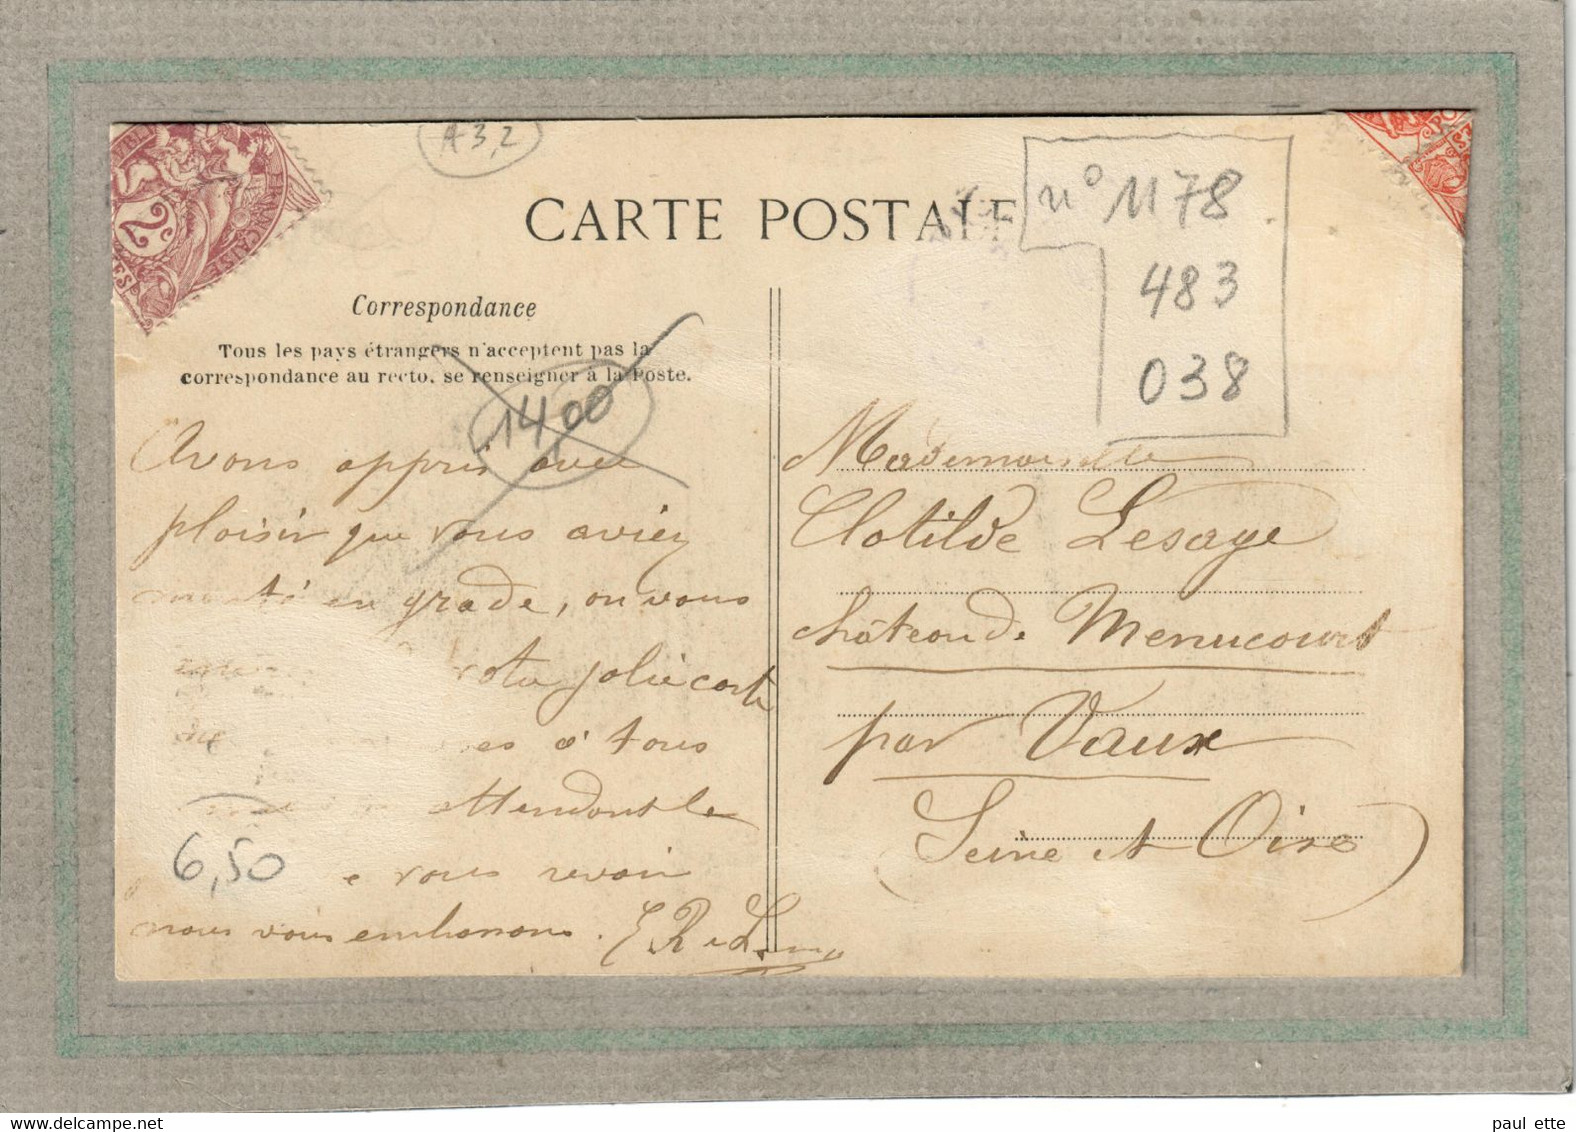 A3,2
CARTE POSTALE
n° 1178
483
038
2c
Correspondance
Tous les pays étrangers n'acceptent pas la
correspondance au recto, se renseigner à la Poste.
1400
Avons appris avec
plaisir que vous aviez
monté en grade, on vous
votre jolie carte
à tous
attendant le
6,50
vous revoir
nous vous embrassons.
Mademoiselle
Clotilde Lesage
château de Menucourt
par Vaux
(Seine et Oise)
paul ette